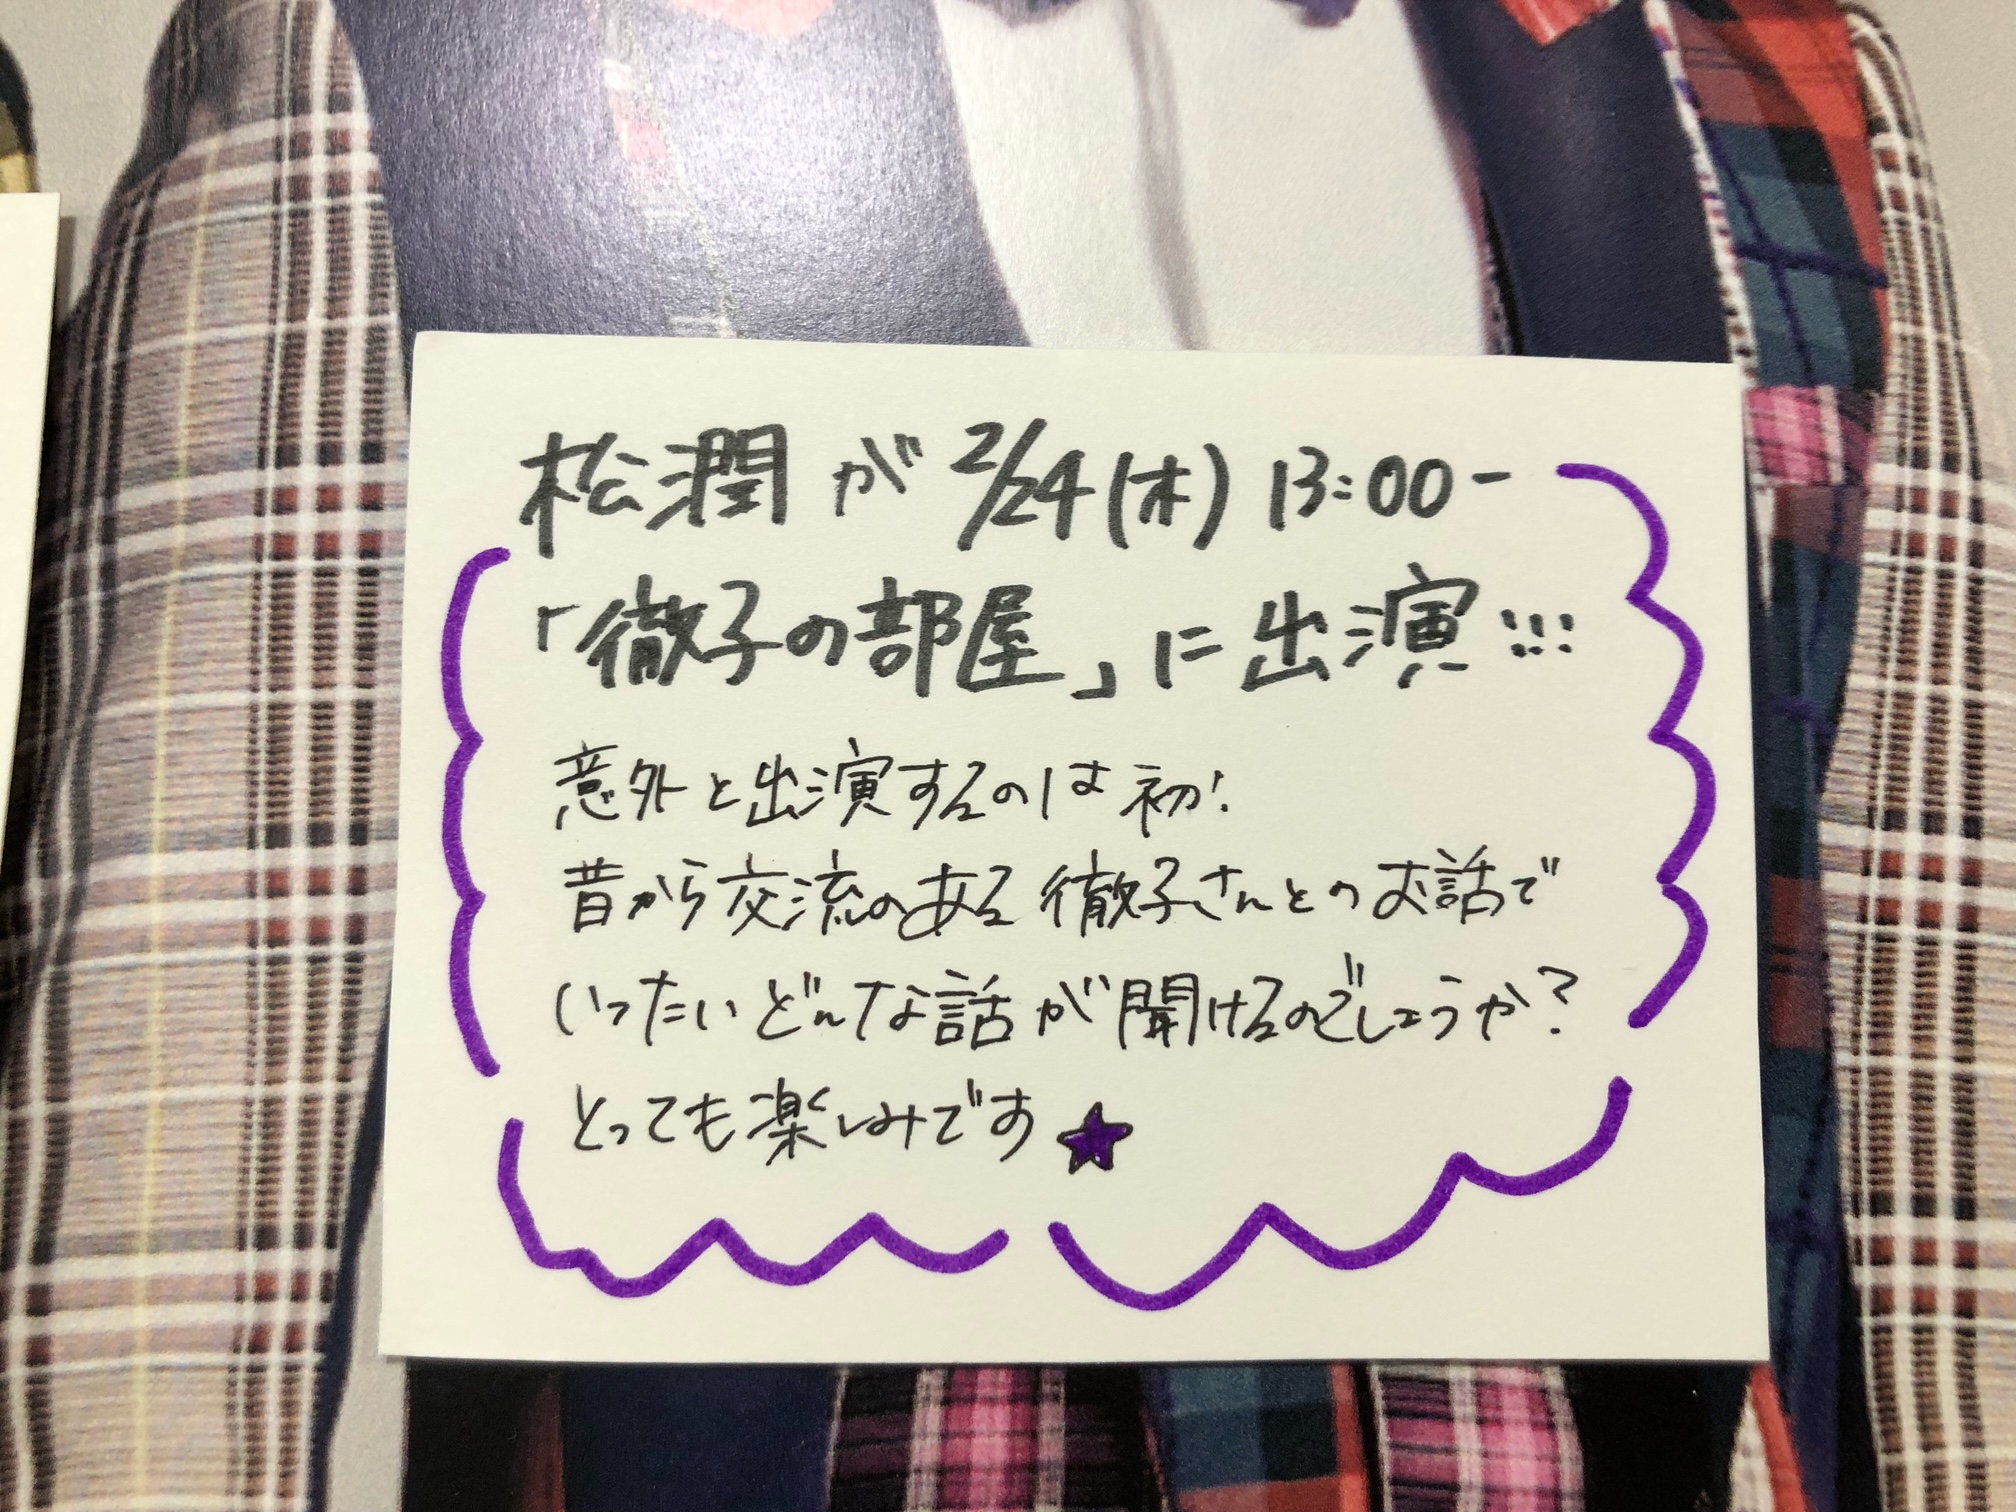 松潤が2/24(木) 13:00-
「徹子の部屋」に出演!!!
意外と出演するのは初!
昔から交流のある徹子さんとのお話で
いったいどんな話が聞けるのでしょうか?
とっても楽しみです★